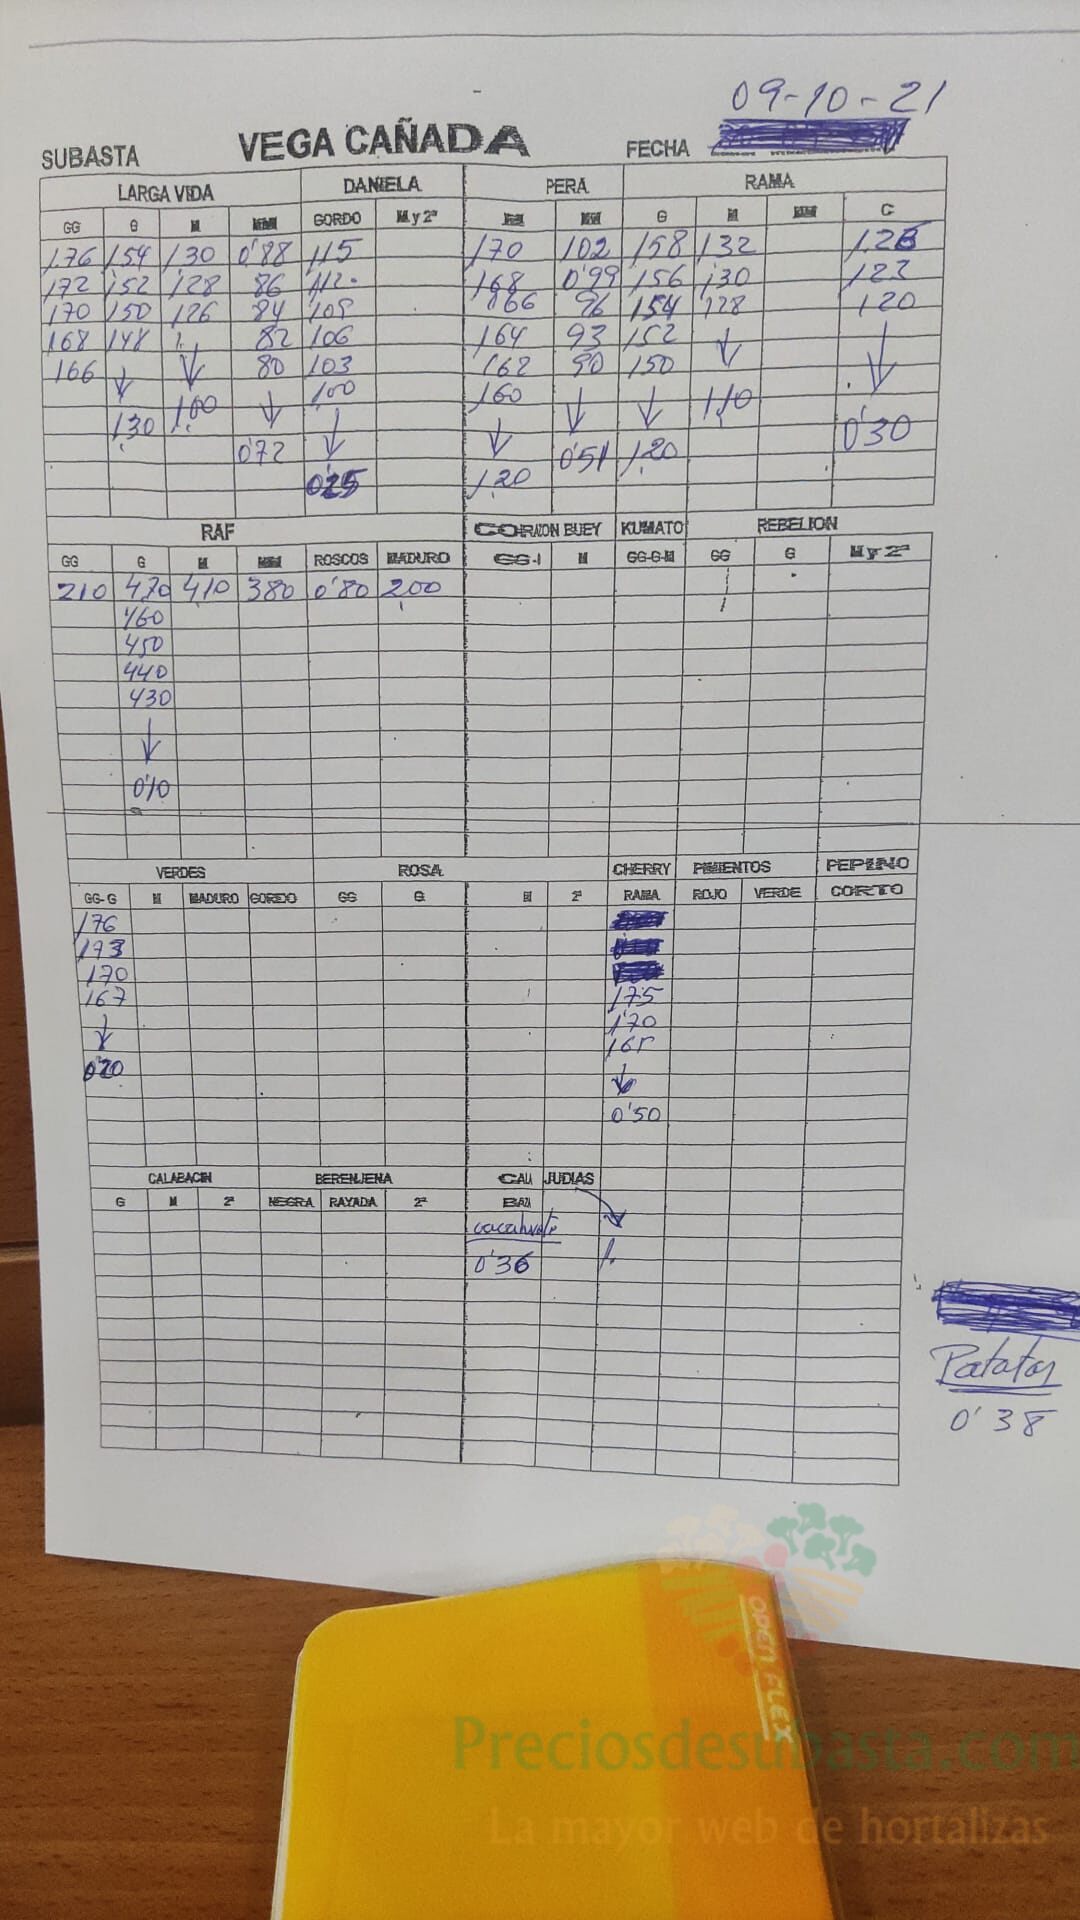 09-10-21
SUBASTA VEGA CAÑADA FECHA
LARGA VIDA DANIELA PERA RAMA
GG G M MM GORDO M y 2ª M MM G M MM C
1.76 154 130 0'88 115 170 102 158 132
172 152 128 86 112 168 0'99 156 130 123
170 150 126 84 109 166 96 154 128 120
168 148 ↓ 82 106 164 93 152 ↓ ↓
166 ↓ 80 103 162 90 150
130 1.00 ↓ 100 160 ↓ ↓ 110 0'30
0'72 ↓ ↓ 0'51 1.20
0'25 1.20
RAF CORAZON BUEY KUMATO REBELION
GG G M MM ROSCOS MADURO GG-G M GG-G-M GG G M y 2ª
210 470 410 380 0'80 200
460
450
440
430
↓
0'10
VERDES ROSA CHERRY PIMIENTOS PEPINO
GG-G M MADURO GORDO GG G M 2ª RAMA ROJO VERDE CORTO
176
173
170
167 175
↓ 170
0'20 165
↓
0'50
CALABACIN BERENJENA CALA JUDIAS
G M 2ª NEGRA RAYADA 2ª BAZA
cacahuete
0'36
Patatas
0'38
OPEN FLEX
Preciosdesubasta.com
La mayor web de hortalizas